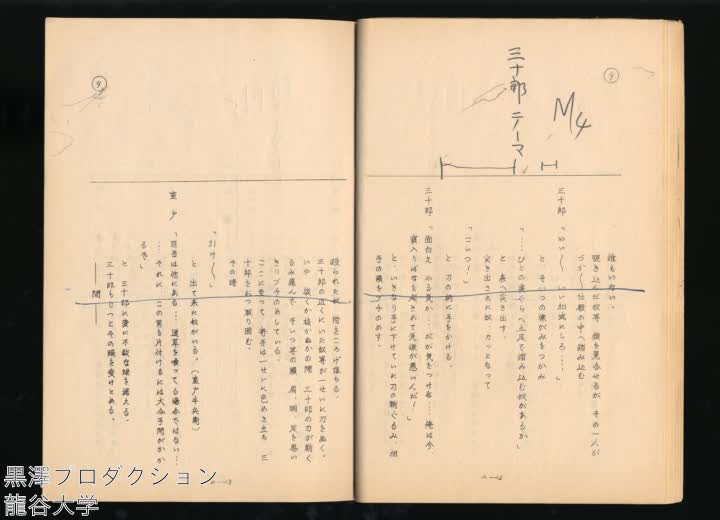 ⑨
M4
三十郎 テーマ
誰もいない。
覗き込んだ奴等、顔を見合せるが、その一人が
づかく仕殿の中へ踏み込む。
三十郎「やいく いい加減にしろ……」
と そいつの襟がみをつかみ
「……ひとの塞ぐらへ土足で踏み込む奴があるか」
と 表へ突き出す。
突き出された奴、カッとなって
「こいつ！」
と 刀の柄に手をかける。
三十郎「面白え やる気か……だが気をつけな……俺は今、
寝入りばなを起されて先後が悪いんだ！」
と、いきなり手に下げていた刀の鞘ぐるみ、相
手の頭をブチのめす。
A—12
⑨
殴られた奴、階をころげ落ちる。
三十郎の近くにいた奴等が一せいに刀をぬく。
いや、抜くか抜かぬかの間、三十郎の刀が鞘ぐ
るみ飛んで、そいつ等の頭、肩、胴、足を思い
きりブチのめしている。
ここに至って、寄手は一せいに色めき立ち、三
十郎をおっ取り囲む。
その時
「引けく」
と 出て来た奴がいる。(室戸半兵衛)
室戸「目当は他にある……道草を喰ってる場合ではない……
……それに、この男を片付けるには大分手間がかか
るぞ」
と 三十郎に実に不敵な眼を据える。
三十郎もじっとその眼を受けとめる。
—— 間 ——
A—13
黒澤プロダクション
龍谷大学